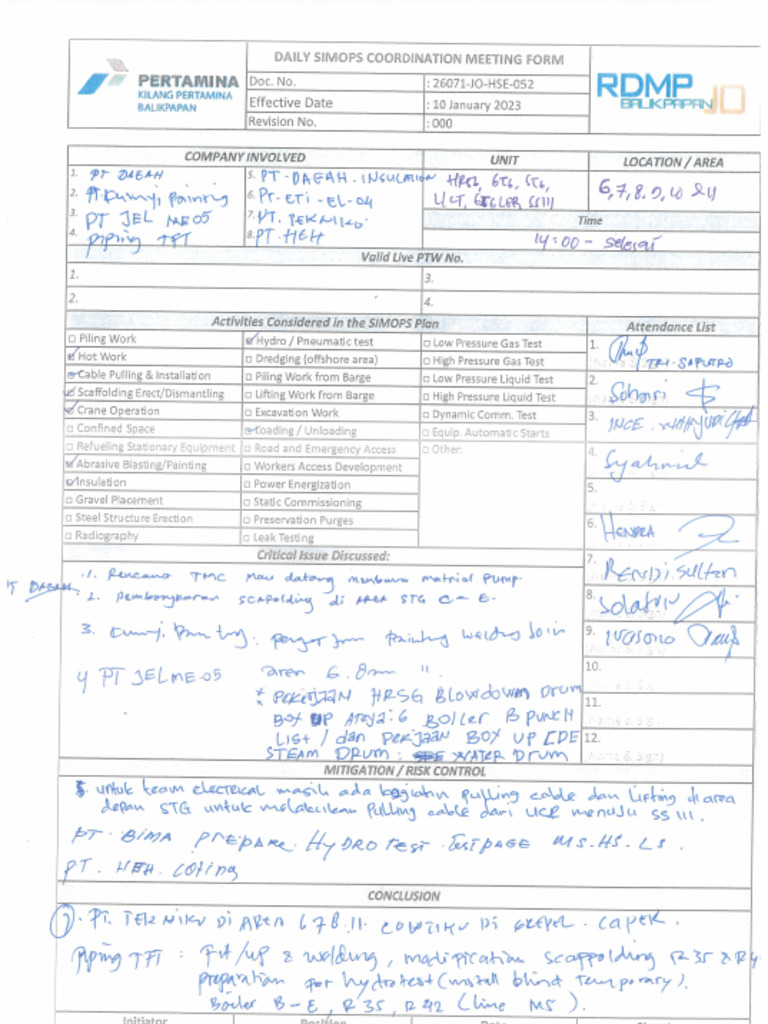 PERTAMINA
KILANG PERTAMINA
BALIKPAPAN
DAILY SIMOPS COORDINATION MEETING FORM
Doc. No. : 26071-JO-HSE-052
Effective Date : 10 January 2023
Revision No. : 000
RDMP
BALIKPAPAN JO
COMPANY INVOLVED
1. PT DAEAH
2. PT. Kumyi Painting
3. PT JEL ME 05
4. Piping TPT
5. PT-DAEAH. INSULATION
6. PT-ETI-EL-04
7. PT. TEKNIKO
8. PT. HEH
UNIT
HRSG, GTG, STG,
SS111
LOCATION / AREA
6, 7, 8, 9, 10 & 11
Time
14:00 - selesai
Valid Live PTW No.
1. 3.
2. 4.
Activities Considered in the SIMOPS Plan
Piling Work
Hot Work
Cable Pulling & Installation
Scaffolding Erect/Dismantling
Crane Operation
Confined Space
Refueling Stationary Equipment
Abrasive Blasting/Painting
Insulation
Gravel Placement
Steel Structure Erection
Radiography
Hydro / Pneumatic test
Dredging (offshore area)
Piling Work from Barge
Lifting Work from Barge
Excavation Work
Loading / Unloading
Road and Emergency Access
Workers Access Development
Power Energization
Static Commissioning
Preservation Purges
Leak Testing
Low Pressure Gas Test
High Pressure Gas Test
Low Pressure Liquid Test
High Pressure Liquid Test
Dynamic Comm. Test
Equip. Automatic Starts
Other:
Attendance List
1. TRI-SAPUTRO
2. Sohari
3. INCE. WAHYUDI
4. Syahmid
5.
6. HENDRA
7. RENDI. Sultan
8.
9. WASONO
10.
11.
12.
Critical Issue Discussed:
PT DAEAH
1. Rencana TMC mau datang membawa matrial pump.
2. Pembongkaran SCAFOLDING di AREA STG C-E.
3. Kumyi Painting: pengerjaan Painting welding join
area 6.8
4 PT JEL ME-05
* PEKERJAAN HRSG BLOWDOWN DRUM
BOX UP AREA: 6 BOILER B PUNCH
LIST / dan PEKERJAAN BOX UP CDE
STEAM DRUM: WATER DRUM
MITIGATION / RISK CONTROL
5. untuk team electrical masih ada kegiatan pulling cable dan lifting di area
depan STG untuk melakukan Pulling cable dari UCR menuju SS 111.
PT. BIMA PREPARE. HYDROTEST. TESTPAGE MS. HS. LS.
PT. HEH. COTING
CONCLUSION
7. PT. TEKNIKO DI AREA 678.11.
Piping TPT : Fit/up & welding, modipication scappolding R 35 & R4
preparation for hydrotest (install blind temporary).
Boiler B-E, R 35, R42 (line MS).
Initiator Position Date